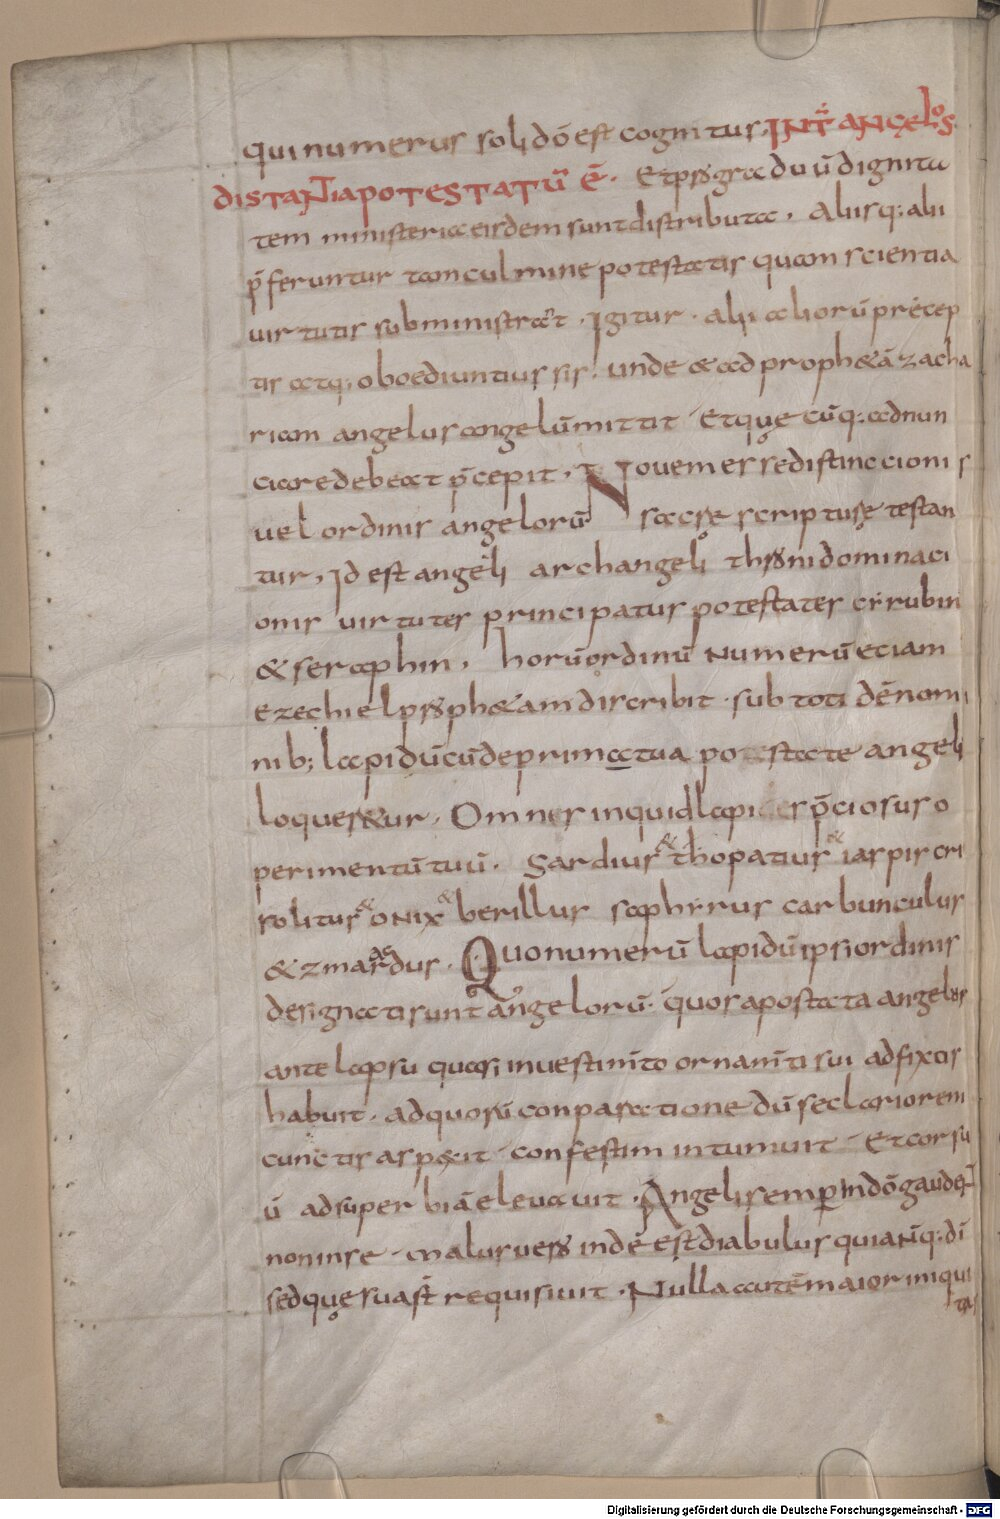 qui numerus soli dō est cognitus. INT̄ ANGELOS
DISTANTIA POTESTATŪ Ē. Et pro graduū dignita
tem ministeria eisdem sunt distributa. aliisq; alii
p̄feruntur tam culmine potestatis quam scientia
virtutis subministrat̄. Igitur. alii aliorū precep
tis atq; oboediuntius sis. unde & ad proph&ā zacha
riam angelus angelū mittit Et quę cūq; adnun
ciare debeat p̄cepit. Novem esse distinccionis
vel ordinis angelorū sacrę scripturę testan
tur, Id est angeli archangeli throni dominaci
onis virtutes principatus potestates cirubin
& seraphin, horū ordinū numerū eciam
ezechiel proph&am discribit. sub toti dē nomi
nib; lapidū cū de primatua potestate angeli
loquer&ur, Omnes inquid lapides p̄ciosus o
perimentū tuū. Sardius & thopatius & iaspis cri
solitus & onix & berillus saphirus carbunculus
& zmaragdus. Quo numerū lapidū ipsi ordinis
designati sunt angelorū. quos apostata angelus
ante lapsu quasi in vestim̄to ornam̄ti sui adfixtis
habuit. ad quorū conparatione dū se clariorem
cunctis aspexit confestim intumuit Et cor su
ū ad superbiā elevavit. Angeli semp̄ in dō gauder̄
non in se. malus vero inde est diabulus quia nq; di
sed quę sua st̄ requisivit. Nulla autē maior iniqui
tas
Digitalisierung gefördert durch die Deutsche Forschungsgemeinschaft - DFG